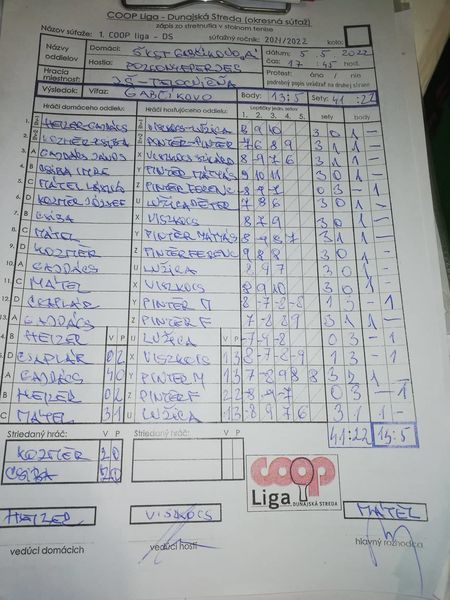 COOP Liga - Dunajská Streda (okresná súťaž)
zápis zo stretnutia v stolnom tenise
Názov súťaže: 1. COOP liga - DS súťažný ročník: 2021/2022 kolo:
Názvy oddielov Domáci: ŠKST GABČÍKOVO „A" dátum: 5. 5 2022
Hostia: čas: 17 45 hod.
Hracia miestnosť Protest: áno / nie
podrobný popis uviesť na druhej strane
Výsledok: Víťaz: GABČÍKOVO Body: 13:5 Sety: 41 :22
Hráči domáceho oddielu: Hráči hosťujúceho oddielu: Loptičky jedn. setov sety body
1. 2. 3. 4. 5.
1. HEIZER-GAJDÁCS 8 9 10 3 0 1 -
2. PINTÉR-PINTÉR 7 6 8 9 3 1 1 -
3. A GAJDÁCS JÁNOS X 8 -9 7 6 3 1 1 -
4. B CSIBA IMRE Y PINTÉR MÁTYÁS 9 10 11 3 0 1 -
5. C Z PINTÉR FERENC 0 3 - 1
6. D KOZMÉR JÓZSEF U LUŽICA PÉTER 7 8 6 3 0 1 -
7. B CSIBA X VISZKOCS 8 7 9 3 0 1 -
8. C MATEL Y PINTÉR MÁTYÁS 3 1 1 -
9. D KOZMÉR Z PINTÉR FERENC 9 8 8 3 0 1 -
10. A GAJDÁCS U LUŽICA 8 9 7 3 0 1 -
11. C MATEL X VISZKOCS 8 9 10 3 0 1 -
12. D CSAPLÁR Y PINTÉR M 8 -7 -8 -8 1 3 - 1
13. A GAJDÁCS Z PINTÉR F 3 1 1 -
14. B HEIZER V P U LUŽICA V P -7 -9 -8 0 3 - 1
15. D CSAPLÁR 0 2 X VISZKOCS 1 3 8 -7 -8 -9 1 3 - 1
A GAJDÁCS 4 0 Y PINTÉR M 1 3 1 -
B HEIZER 0 2 Z PINTÉR F 2 2 0 3 - 1
C MATEL 3 1 U LUŽICA 1 3 -8 9 7 6 3 1 1 -
Striedaný hráč: V P Striedaný hráč: V P 41:22 13:5
KOZMÉR 2 0
CSIBA 2 0
COOP
Liga
DUNAJSKÁ STREDA
HEIZER VISZKOCS MATEL
vedúci domácich vedúci hostí hlavný rozhodca